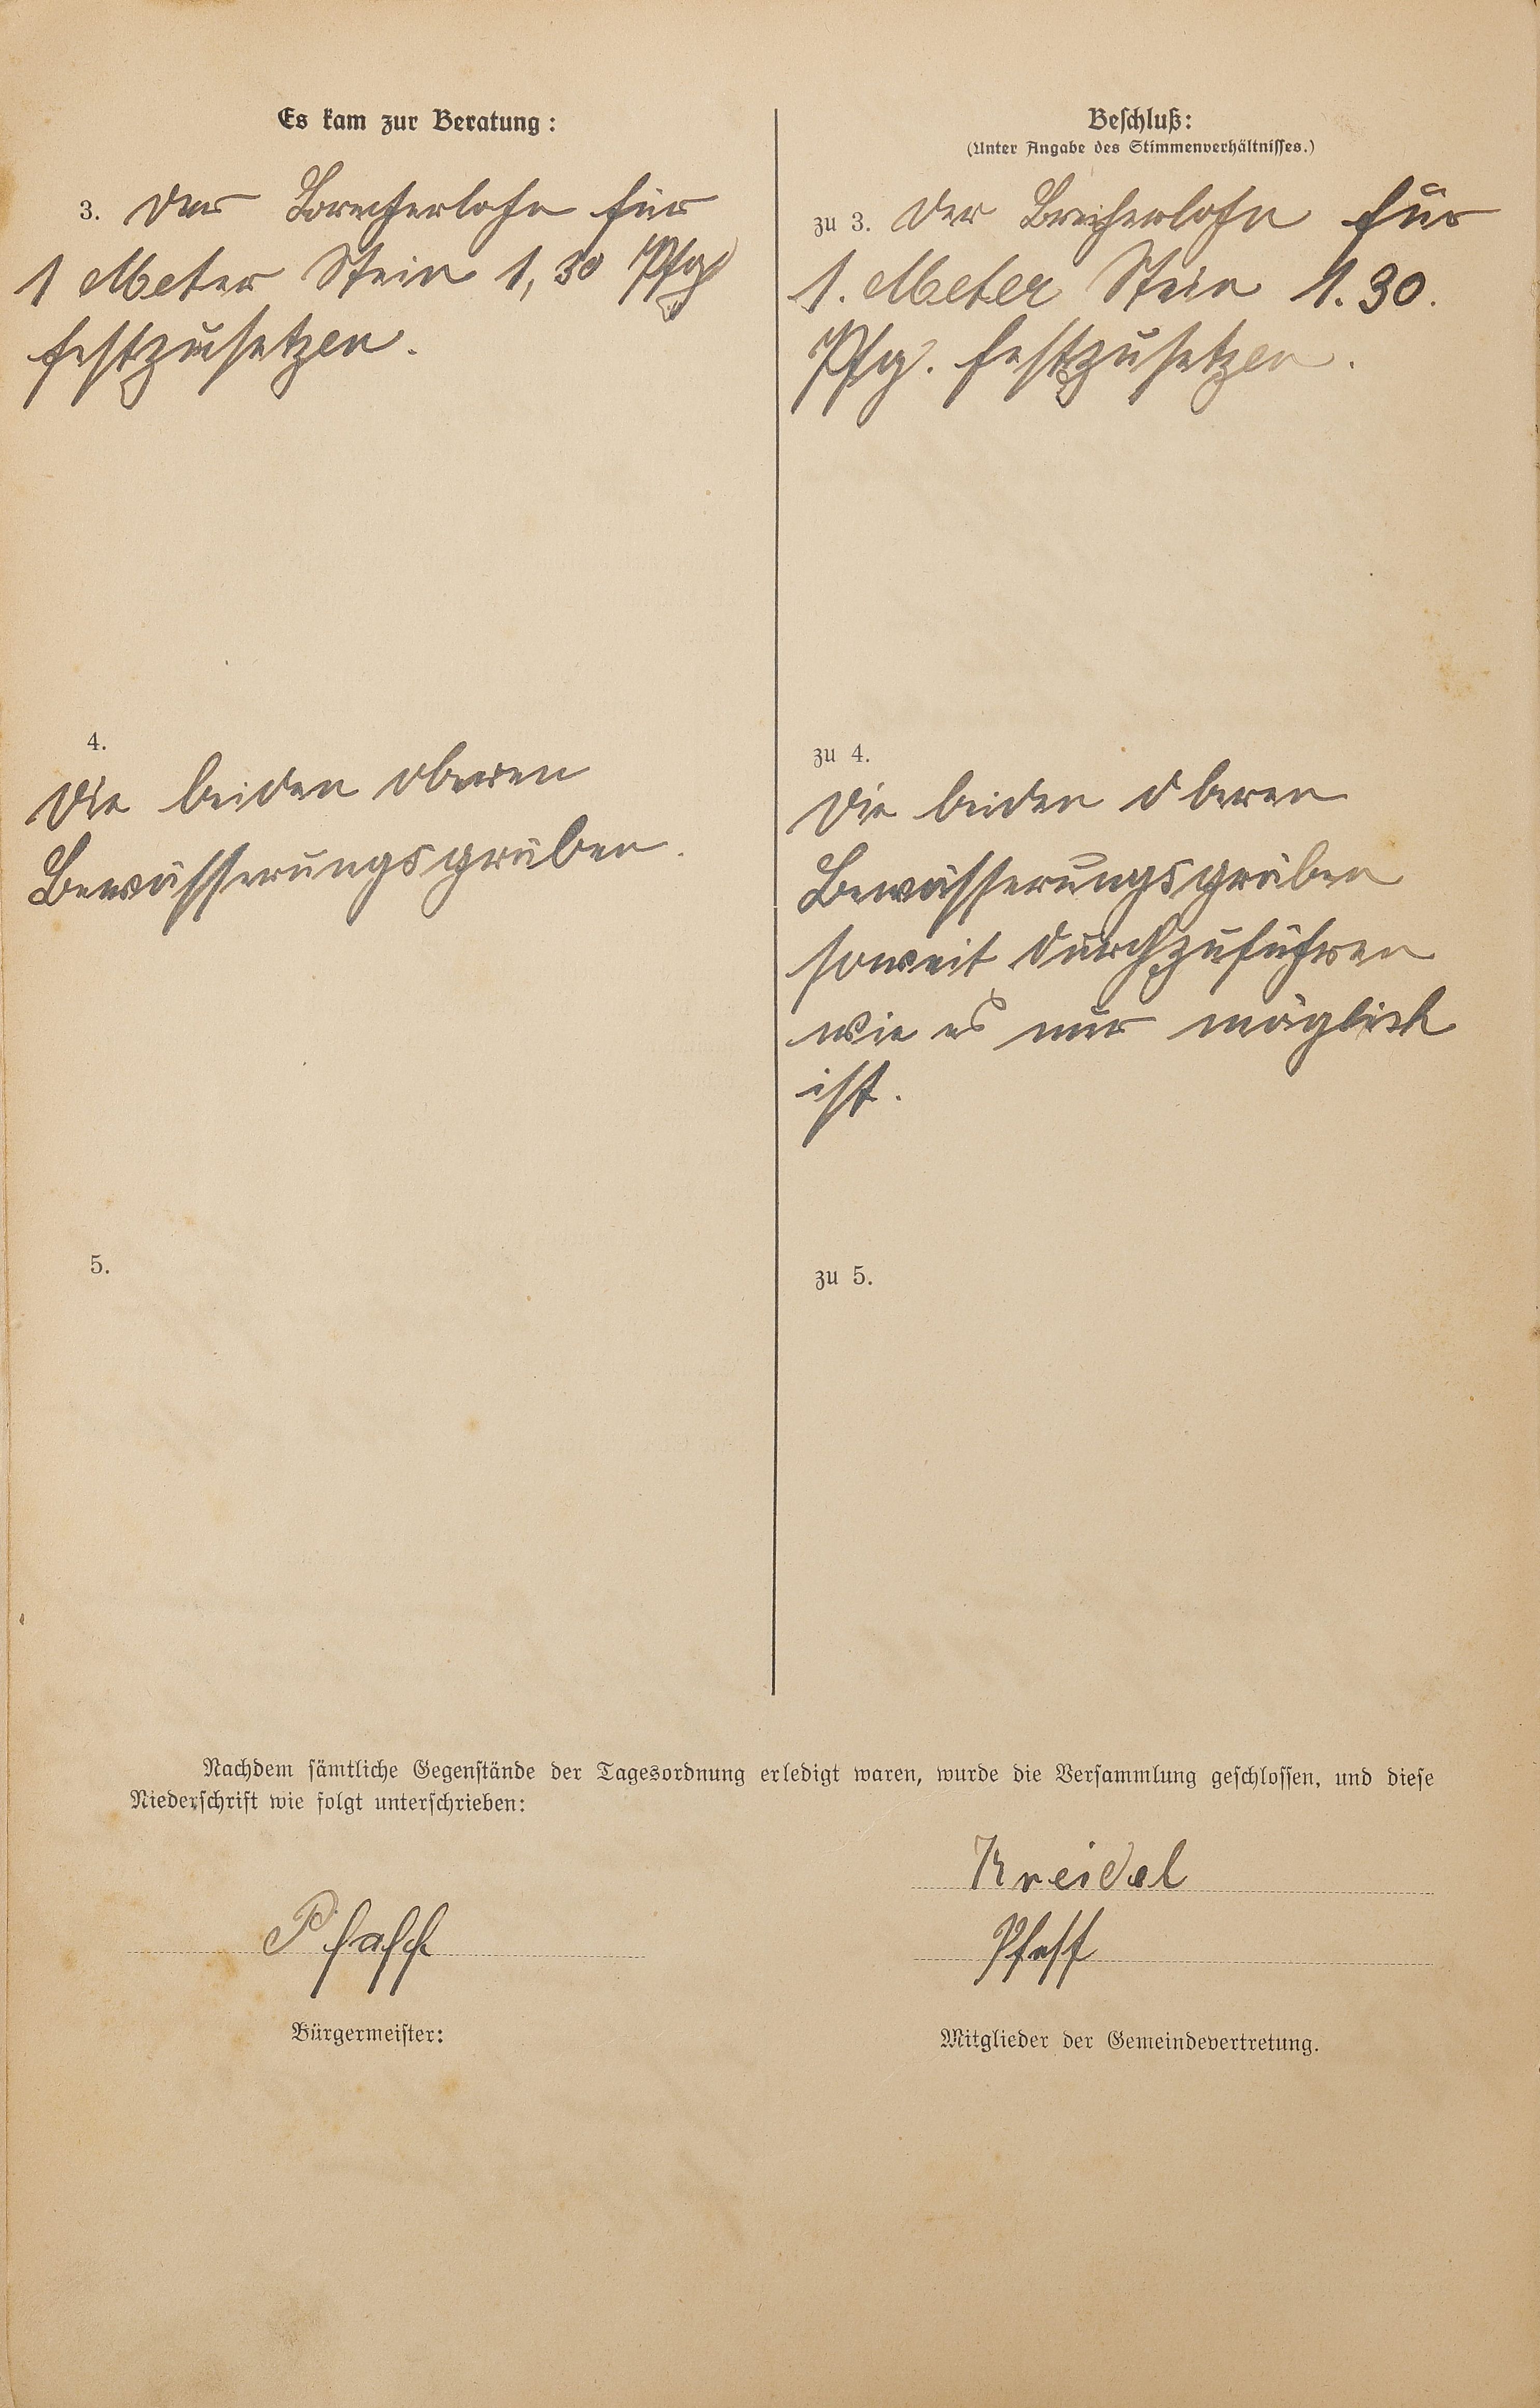 Es kam zur Beratung:
3. Der Brecherlohn für
1 Meter Stein 1,30 Pfg
festzusetzen.
4.
Die beiden oberen
Bewässerungsgräben.
5.
Beschluß:
(Unter Angabe des Stimmenverhältnisses.)
zu 3. Der Brecherlohn für
1. Meter Stein 1.30.
Pfg. festzusetzen.
zu 4.
Die beiden oberen
Bewässerungsgräben
soweit durchzuführen
wie es nur möglich
ist.
zu 5.
Nachdem sämtliche Gegenstände der Tagesordnung erledigt waren, wurde die Versammlung geschlossen, und diese
Niederschrift wie folgt unterschrieben:
Kreidel
Pfaff
Pfaff
Bürgermeister:
Mitglieder der Gemeindevertretung.